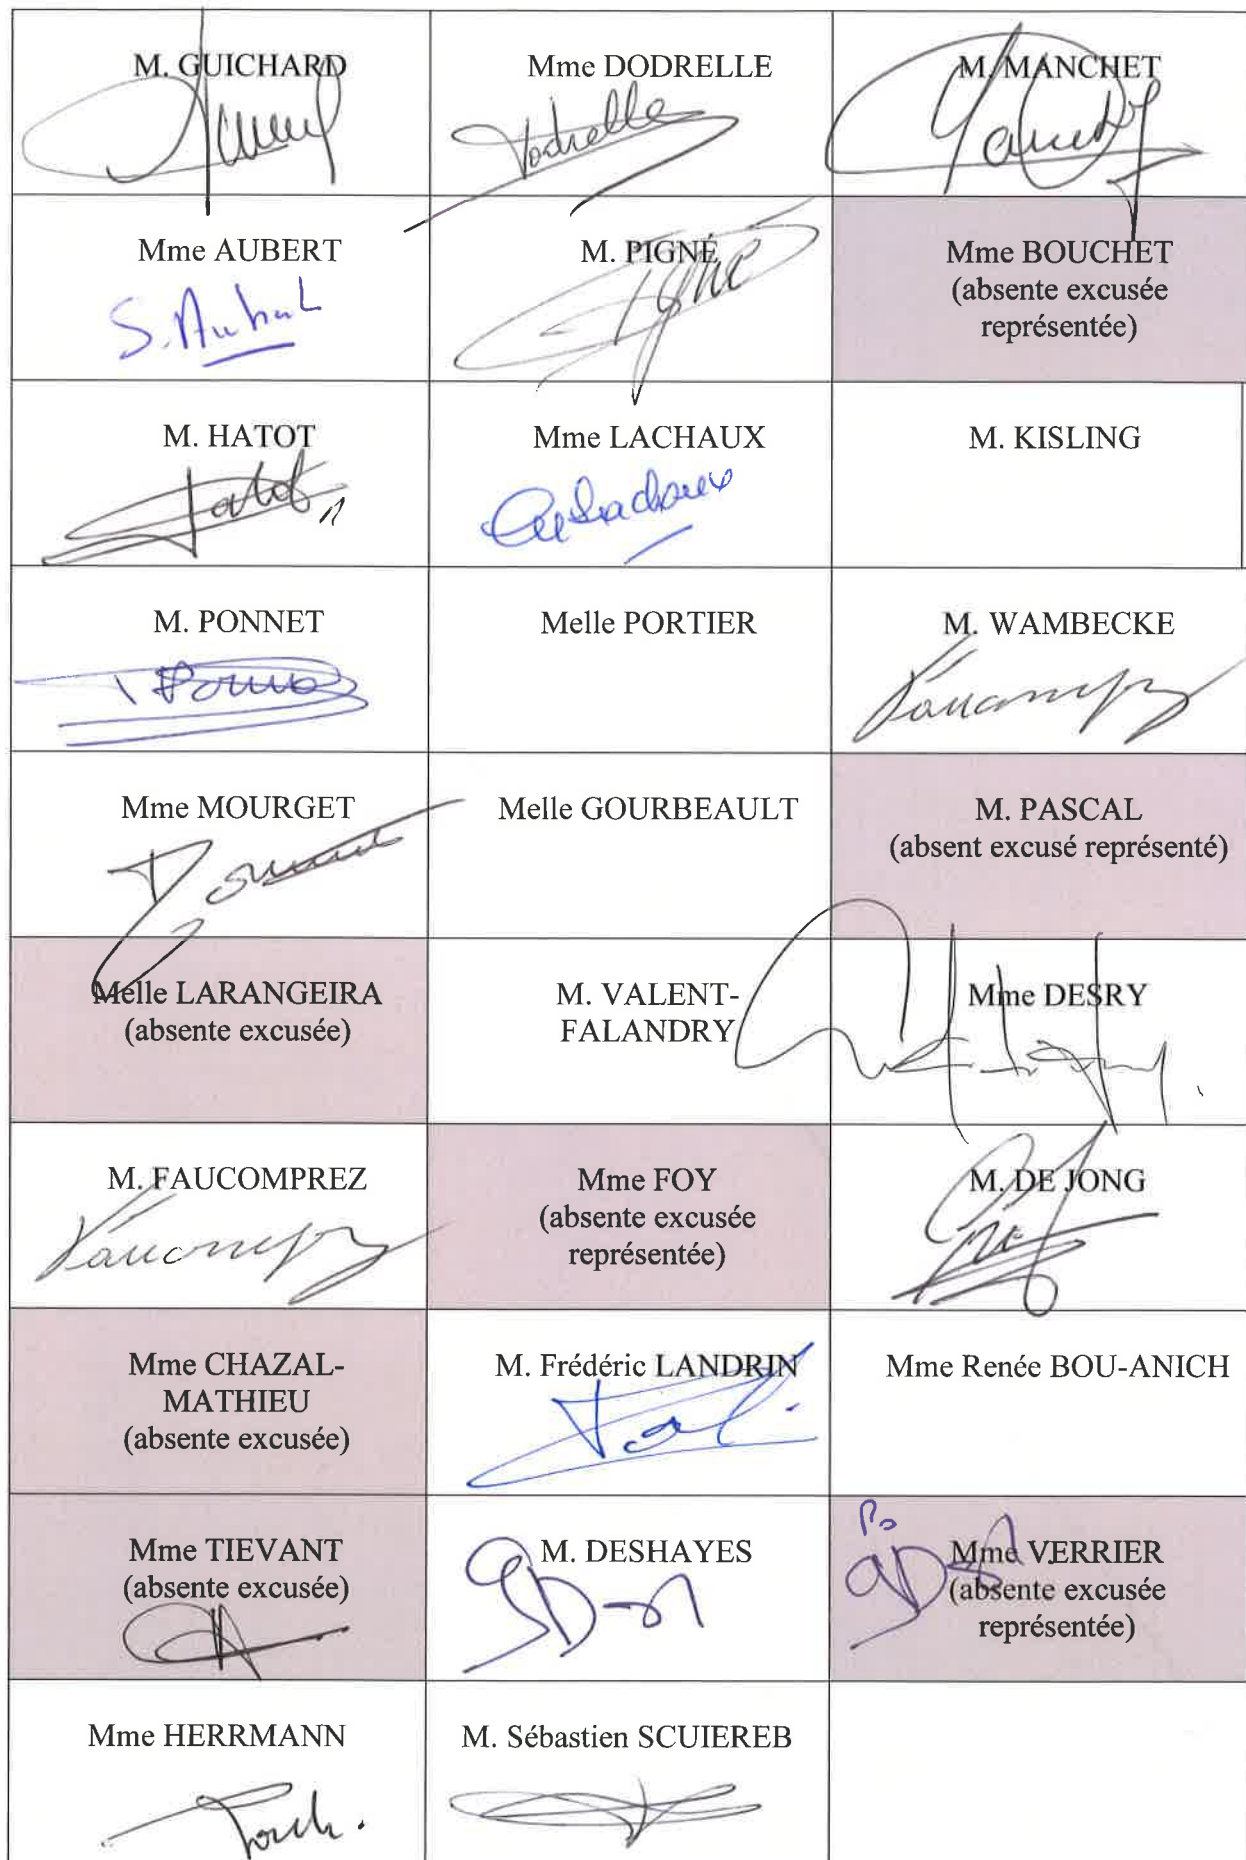 M. GUICHARD
Mme DODRELLE
M. MANCHET
Dodrelle
Mme AUBERT
M. PIGNÉ
Mme BOUCHET
(absente excusée
représentée)
S. Aubert
Pigné
M. HATOT
Mme LACHAUX
M. KISLING
Hatot
M. PONNET
Melle PORTIER
M. WAMBECKE
Mme MOURGET
Melle GOURBEAULT
M. PASCAL
(absent excusé représenté)
Melle LARANGEIRA
(absente excusée)
M. VALENT-
FALANDRY
Mme DESRY
M. FAUCOMPREZ
Mme FOY
(absente excusée
représentée)
M. DE JONG
Mme CHAZAL-
MATHIEU
(absente excusée)
M. Frédéric LANDRIN
Mme Renée BOU-ANICH
Mme TIEVANT
(absente excusée)
M. DESHAYES
Po
Mme VERRIER
(absente excusée
représentée)
Mme HERRMANN
M. Sébastien SCUIEREB